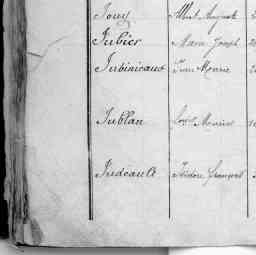 Jouy Albert Auguste
Jubier Marie Joseph
Jubinicaux Jean Marie
Jublan Louis Maurice
Judeault Isidore François